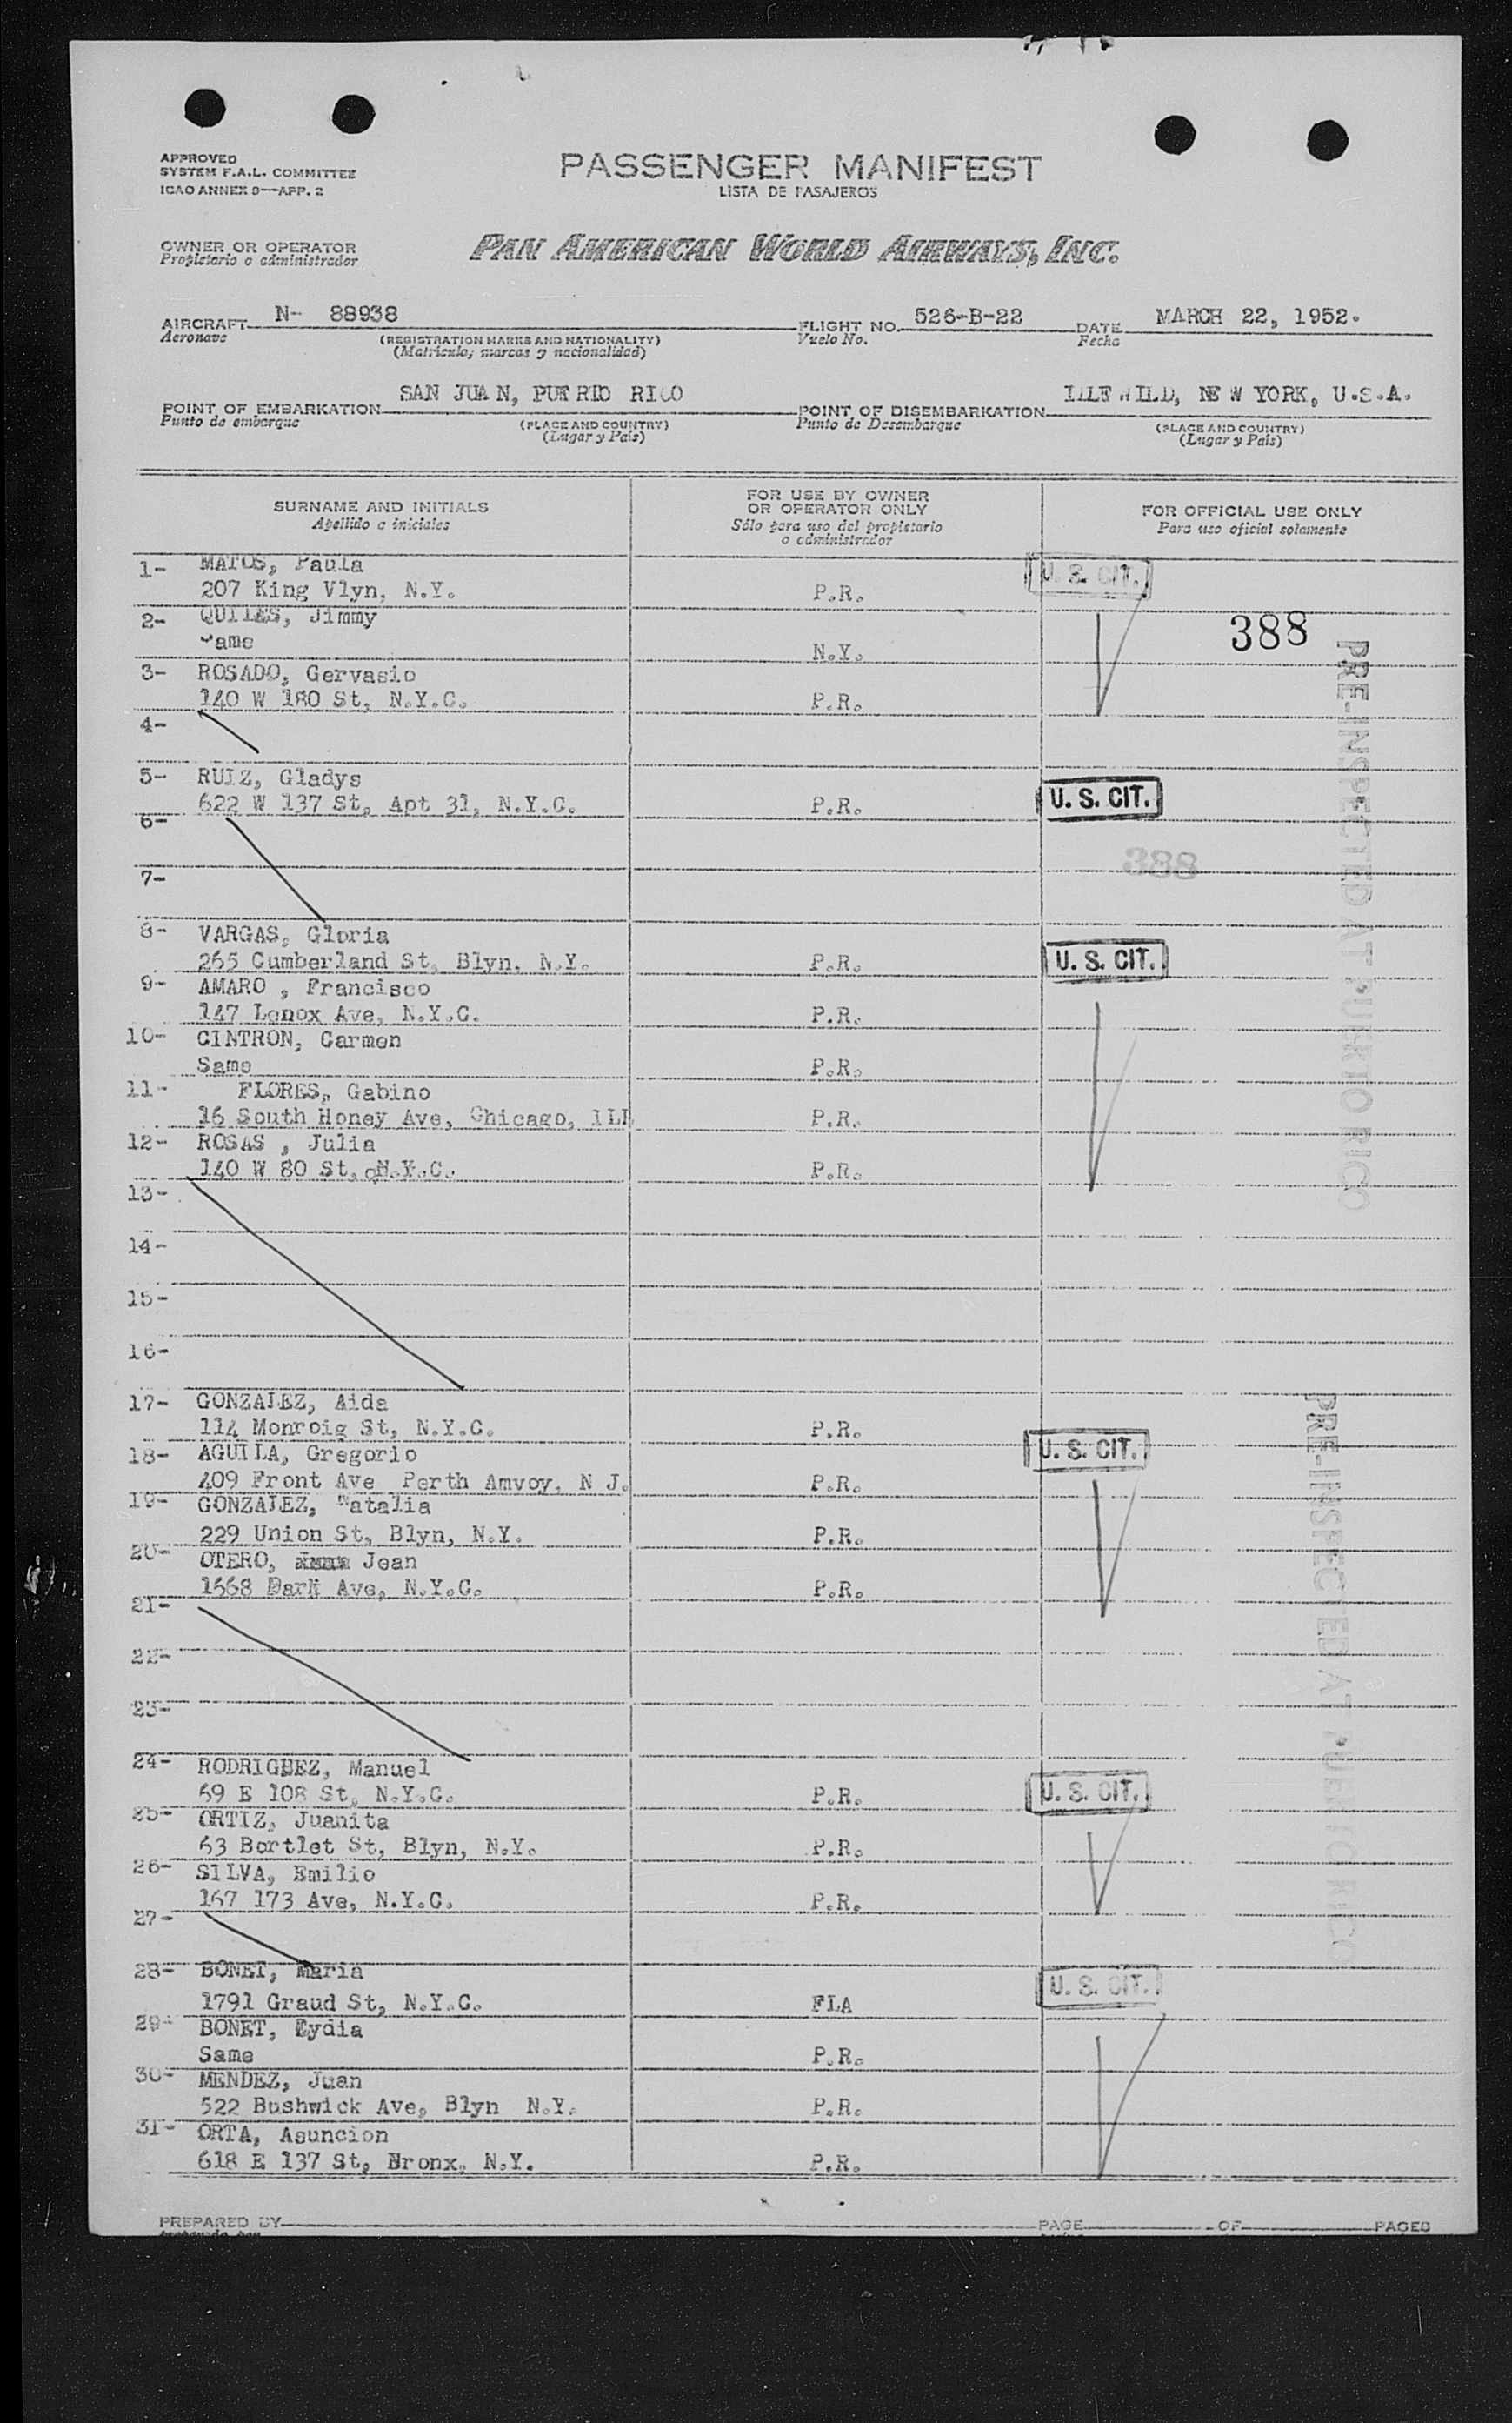 APPROVED
SYSTEM F.A.L. COMMITTEE
ICAO ANNEX 9—APP. 2
PASSENGER MANIFEST
LISTA DE PASAJEROS
OWNER OR OPERATOR
Propietario o administrador
PAN AMERICAN WORLD AIRWAYS, INC.
AIRCRAFT N- 88938
Aeronave
(REGISTRATION MARKS AND NATIONALITY)
(Matrícula, marcas y nacionalidad)
FLIGHT NO. 526-B-22
Vuelo No.
DATE MARCH 22, 1952.
Fecha
POINT OF EMBARKATION SAN JUAN, PUERTO RICO
Punto de embarque
(PLACE AND COUNTRY)
(Lugar y País)
POINT OF DISEMBARKATION IDLEWILD, NEW YORK, U.S.A.
Punto de Desembarque
(PLACE AND COUNTRY)
(Lugar y País)
SURNAME AND INITIALS
Apellido e iniciales
FOR USE BY OWNER
OR OPERATOR ONLY
Sólo para uso del propietario
o administrador
FOR OFFICIAL USE ONLY
Para uso oficial solamente
1- MATOS, Paula
207 King Vlyn, N.Y. P.R. U. S. CIT.
2- QUILES, Jimmy 388
Same N.Y.
3- ROSADO, Gervasio
140 W 180 St, N.Y.C. P.R.
4-
5- RUIZ, Gladys
622 W 137 St, Apt 31, N.Y.C. P.R. U. S. CIT.
6-
388
7-
8- VARGAS, Gloria
265 Cumberland St, Blyn, N.Y. P.R. U. S. CIT.
9- AMARO , Francisco
147 Lenox Ave, N.Y.C. P.R.
10- CINTRON, Carmen
Same P.R.
11- FLORES, Gabino
16 South Honey Ave, Chicago, ILL P.R.
12- ROSAS , Julia
140 W 80 St, N.Y.C. P.R.
13-
14-
15-
16-
17- GONZALEZ, Aida
114 Monroig St, N.Y.C. P.R.
18- AGUILA, Gregorio U. S. CIT.
409 Front Ave Perth Amvoy, N J. P.R.
19- GONZALEZ, Natalia
229 Union St, Blyn, N.Y. P.R.
20- OTERO, Jean
1668 Park Ave, N.Y.C. P.R.
21-
22-
23-
24- RODRIGUEZ, Manuel
69 E 108 St, N.Y.C. P.R. U. S. CIT.
25- ORTIZ, Juanita
63 Bortlet St, Blyn, N.Y. P.R.
26- SILVA, Emilio
167 173 Ave, N.Y.C. P.R.
27-
28- BONET, Maria U. S. CIT.
1791 Graud St, N.Y.C. FLA
29- BONET, Lydia
Same P.R.
30- MENDEZ, Juan
522 Bushwick Ave, Blyn N.Y. P.R.
31- ORTA, Asuncion
618 E 137 St, Bronx, N.Y. P.R.
PRE-INSPECTED AT PUERTO RICO
PRE-INSPECTED AT PUERTO RICO
PREPARED BY PAGE OF PAGES